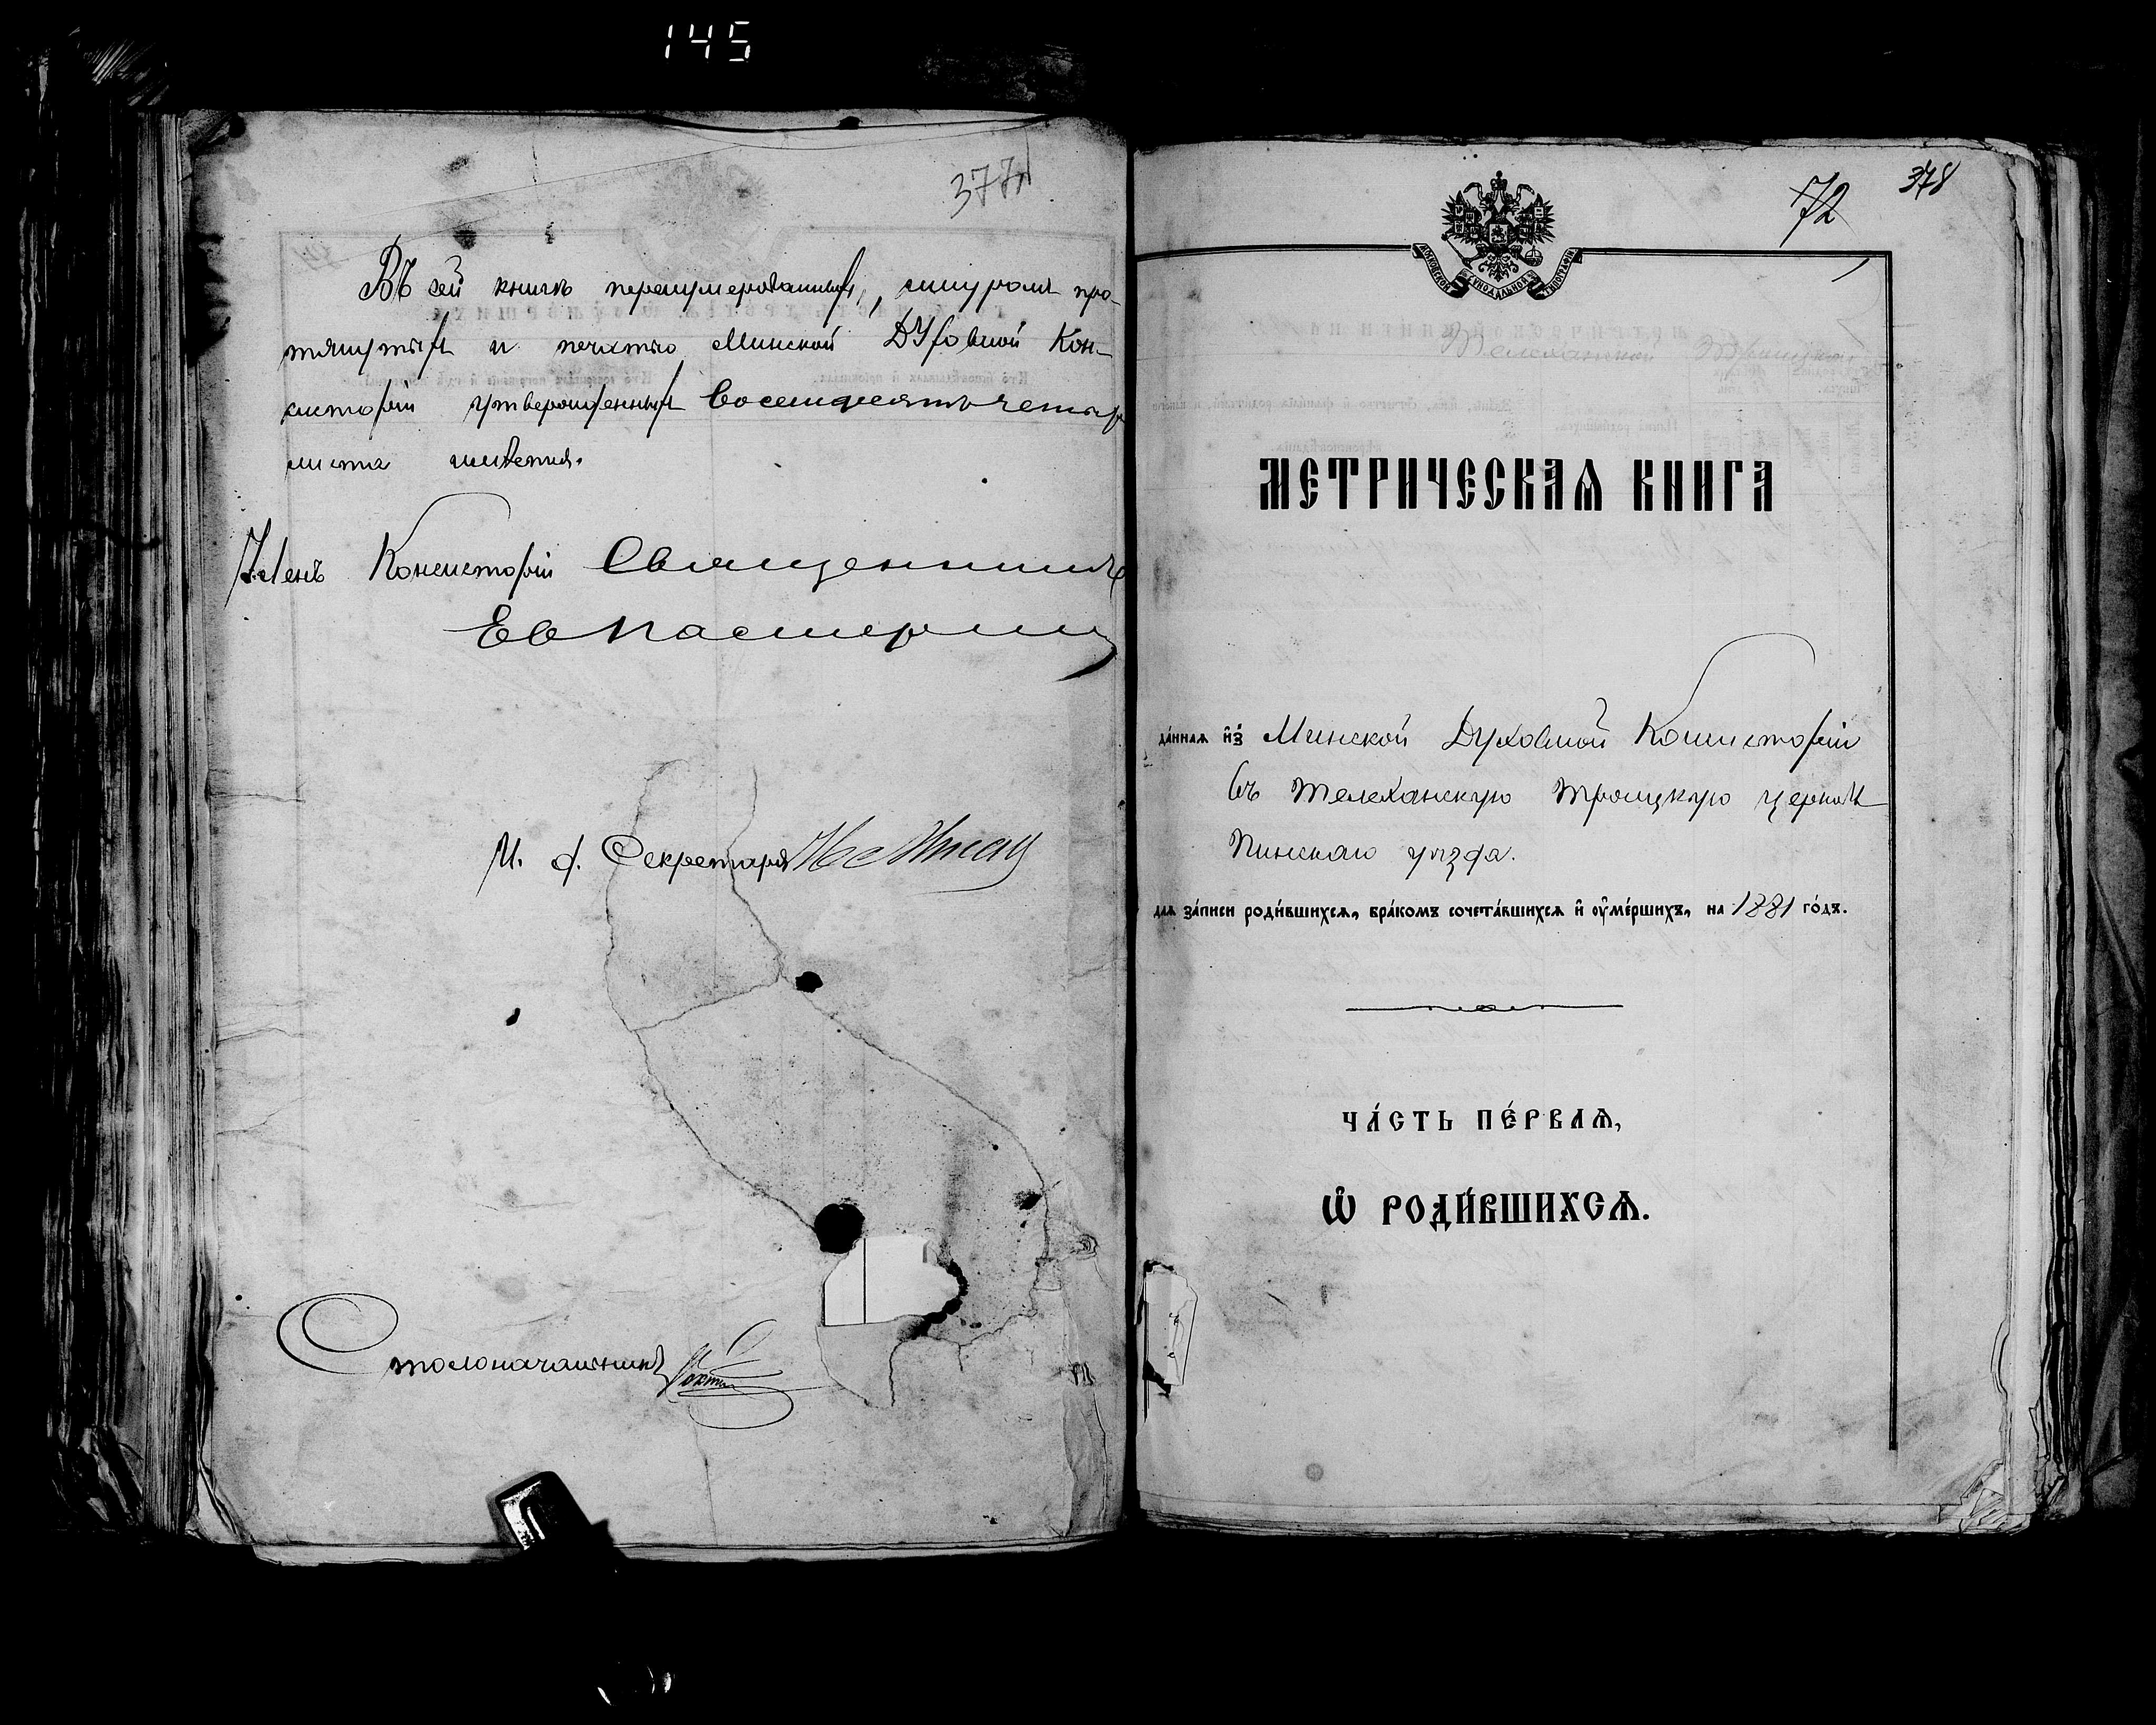 145
377
Въ сей книгѣ перенумерованныхъ, шнуромъ про-
тянутыхъ и печатью Минской Духовной Кон-
систоріи утвержденныхъ восемьдесятъ четыре
листа имѣется.
Членъ Консисторіи Священникъ
И. д. Секретаря
Столоначальникъ
72
378
МОСКОВСКОЙ СѴНОДАЛЬНОЙ ТИПОГРАФІИ
МЕТРИЧЕСКАѦ КНИГА
да́ннаѧ и҆з̾ Минской Духовной Консисторіи
въ Телеханскую Троицкую церковь
Пинскаго уѣзда.
длѧ за́писи роди́вшихсѧ, бра́комъ сочета́вшихсѧ и҆ ᲂу҆ме́ршихъ, на 1881 го́дъ.
ЧА́СТЬ ПЕ́РВАѦ,
Ѽ РОДИ́ВШИХСѦ.